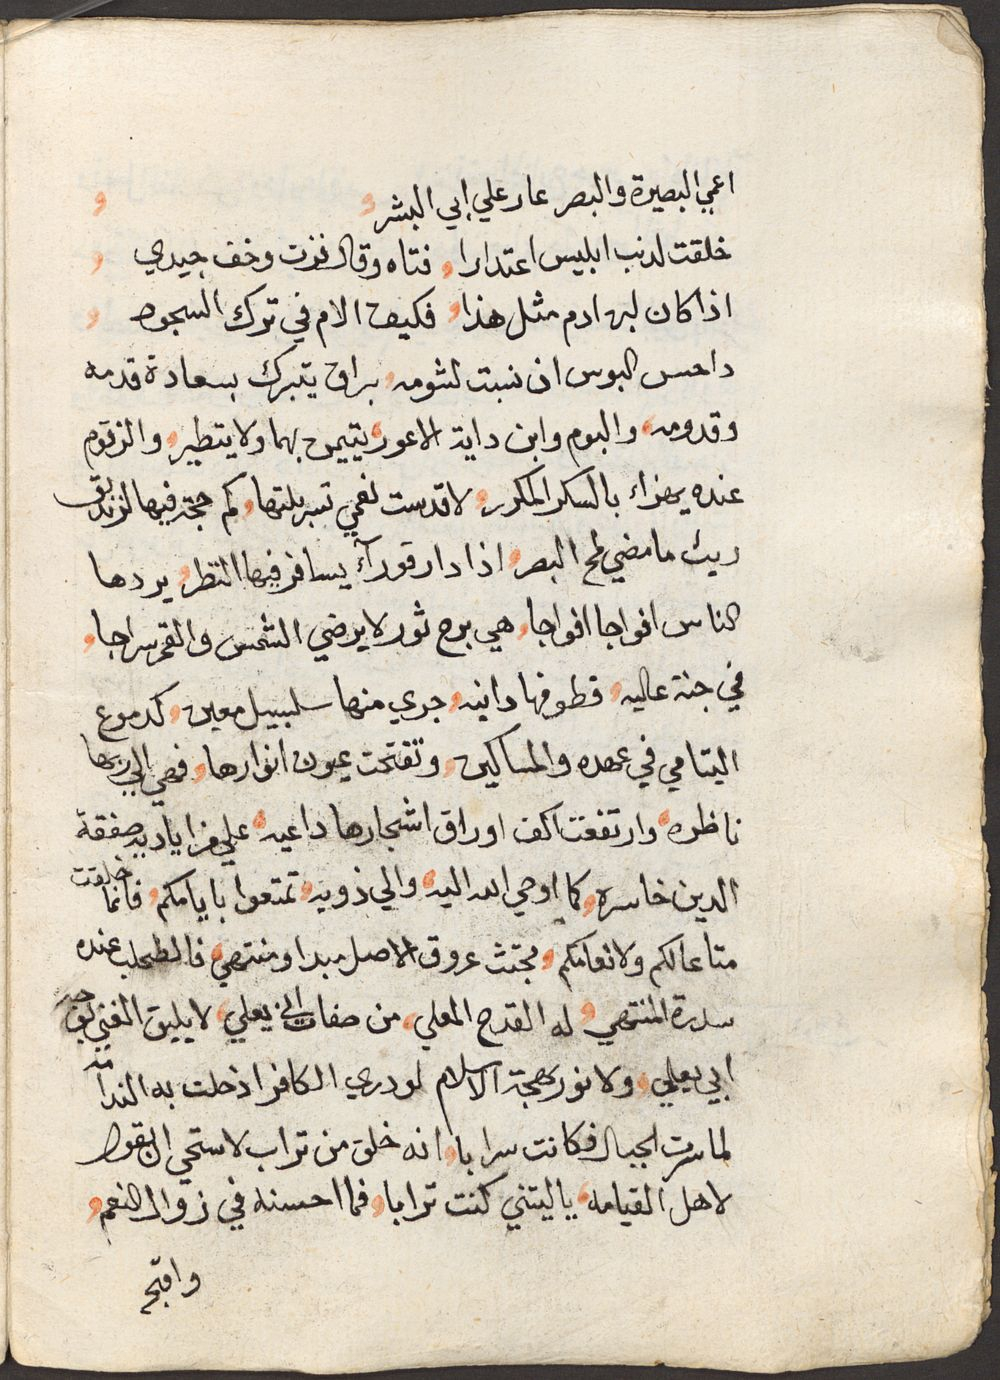 اعمي البصيرة والبصر عار علي ابي البشر
خلقت لدنب ابليس اعتدارا فتاه وقال فزت وخف جيدي
اذا كان ابن ادم مثل هذا فكيف الام في ترك السجود
داحس البوس ان نسبت لشومه براق يتبرك بسعادة قدمه
وقدومه والبوم وابن داية الاعور يتيمن بهما ولا يتطير والزقوم
عنده يهزاء بالسكر المكرر لا قدست نعمي تسربلتها كم حجة فيها لزنديق
ريث ما مضي لمح البصر اذا دار قوراء يسافر فيها النظر يردها
الناس افواجا افواجا هي برج ثور لا يرضي الشمس والقمر سراجا
في جنة عاليه قطوفها دانيه جري منها سلسبيل معين كدموع
اليتامي في عهده والمساكين وتفتحت عيون انوارها فهي الي ربها
ناظره وارتفعت اكف اوراق اشجارها داعيه علي صفقة
الدين خاسره كما اوحي الله اليه والي ذويه تمتعوا بايامكم فانما خلقت
متاعا لكم ولانعامكم مجتث عروق الاصل مبدا ومنتهي فالطحلب عنده
سدرة المنتهي له القدح المعلي من صفات ابي يعلي لا يليق المغني لغير
ابي يعلي ولا نور بهجة الاسلام لو دري الكافر اذ حلت به الندامه
لما سرت الجبال فكانت سرابا انه خلق من تراب لاستحي ان يقول
لاهل القيامه ياليتني كنت ترابا فما احسنه في زوال النعم
واقبح